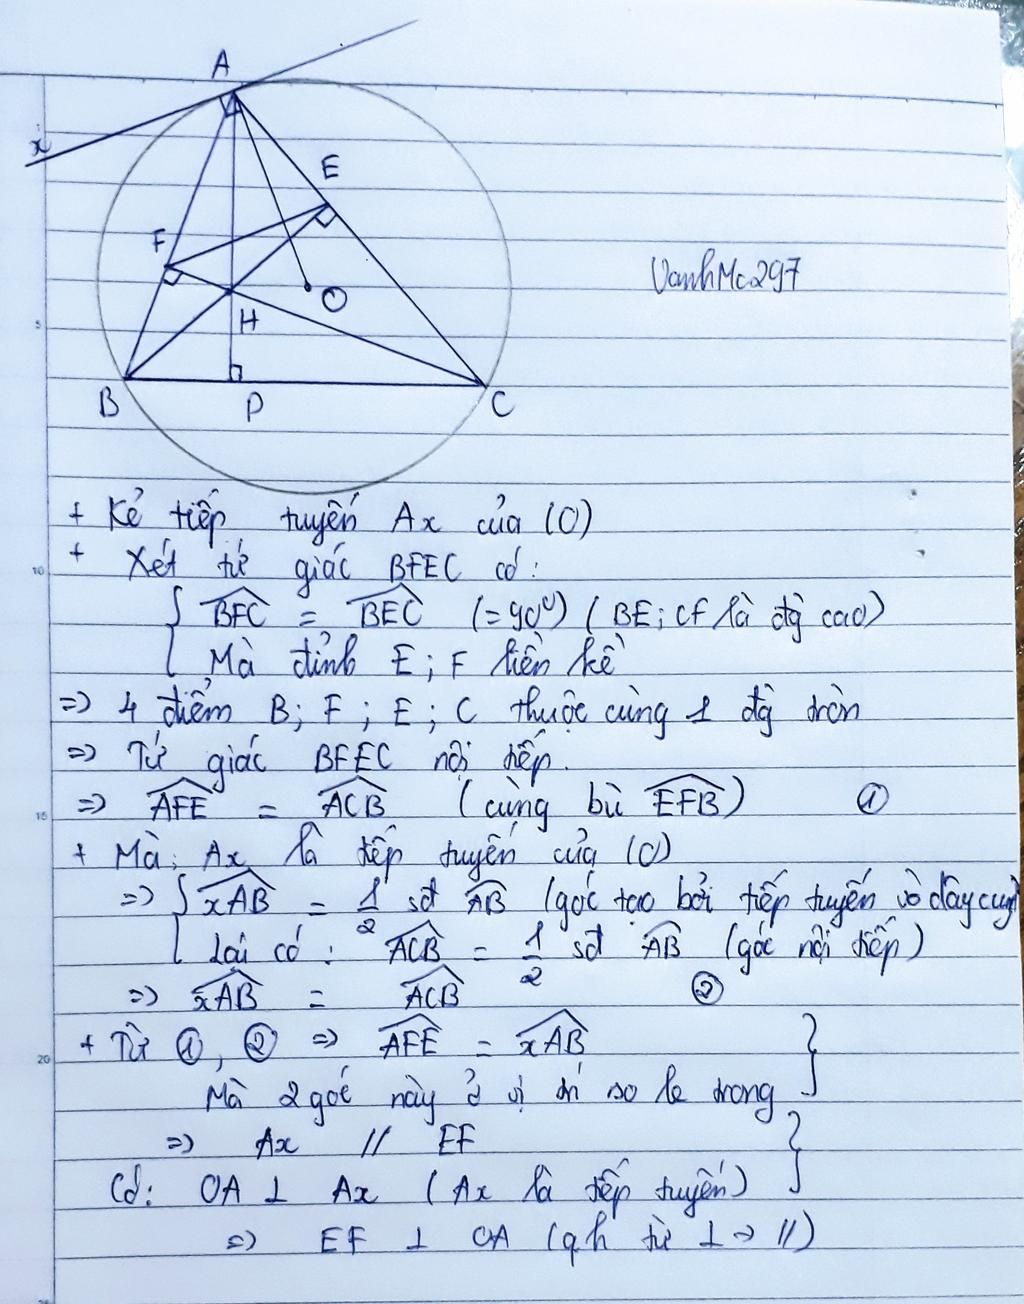 A
x
E
F
O
VanhMc297
H
5
B
D
C
+ Kẻ tiếp tuyến Ax của (O)
+ Xét tứ giác BFEC có:
10
{ BFC = BEC (=90⁰) (BE; CF là đg cao)
Mà đỉnh E; F liền kề
=> 4 điểm B; F; E; C thuộc cùng 1 đg tròn
=> Tứ giác BFEC nội tiếp.
=> AFE = ACB (cùng bù EFB) ①
15
+ Mà: Ax là tiếp tuyến của (O)
=> { xAB = 1/2 sđ AB (góc tạo bởi tiếp tuyến và dây cung)
Lại có: ACB = 1/2 sđ AB (góc nội tiếp)
=> xAB = ACB ②
+ Từ ①, ② => AFE = xAB }
20
Mà 2 góc này ở vị trí so le trong
=> Ax // EF }
Có: OA ⊥ Ax (Ax là tiếp tuyến)
=> EF ⊥ OA (qh từ ⊥ -> //)